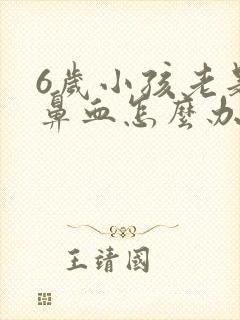 6歲小孩老是
鼻血怎麼办
王靖國